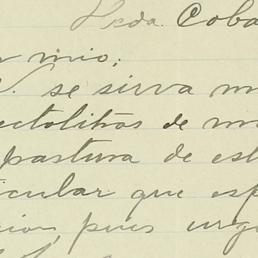 Pcda. Coba
mio;
V. se sirva m
ectolitros de m
pastura de est
icular que esp
cion, pues urg